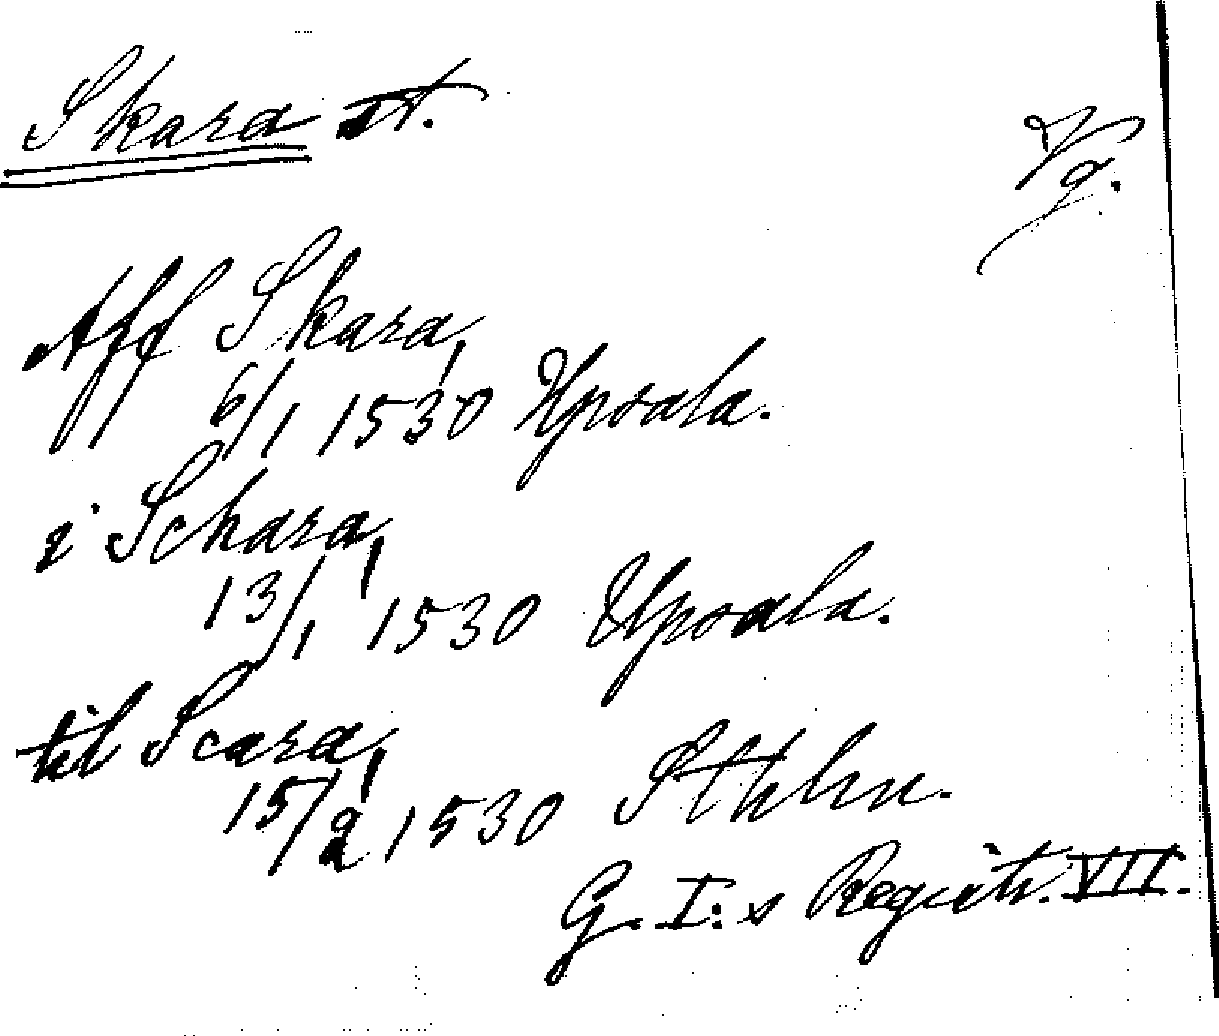 Skara st.
Vg.
Aff Skara,
6/1 1530 Upsala.
i Schara,
13/1 1530 Upsala.
til Scara,
15/2 1530 Sthlm.
G. I:s Registr. VII.